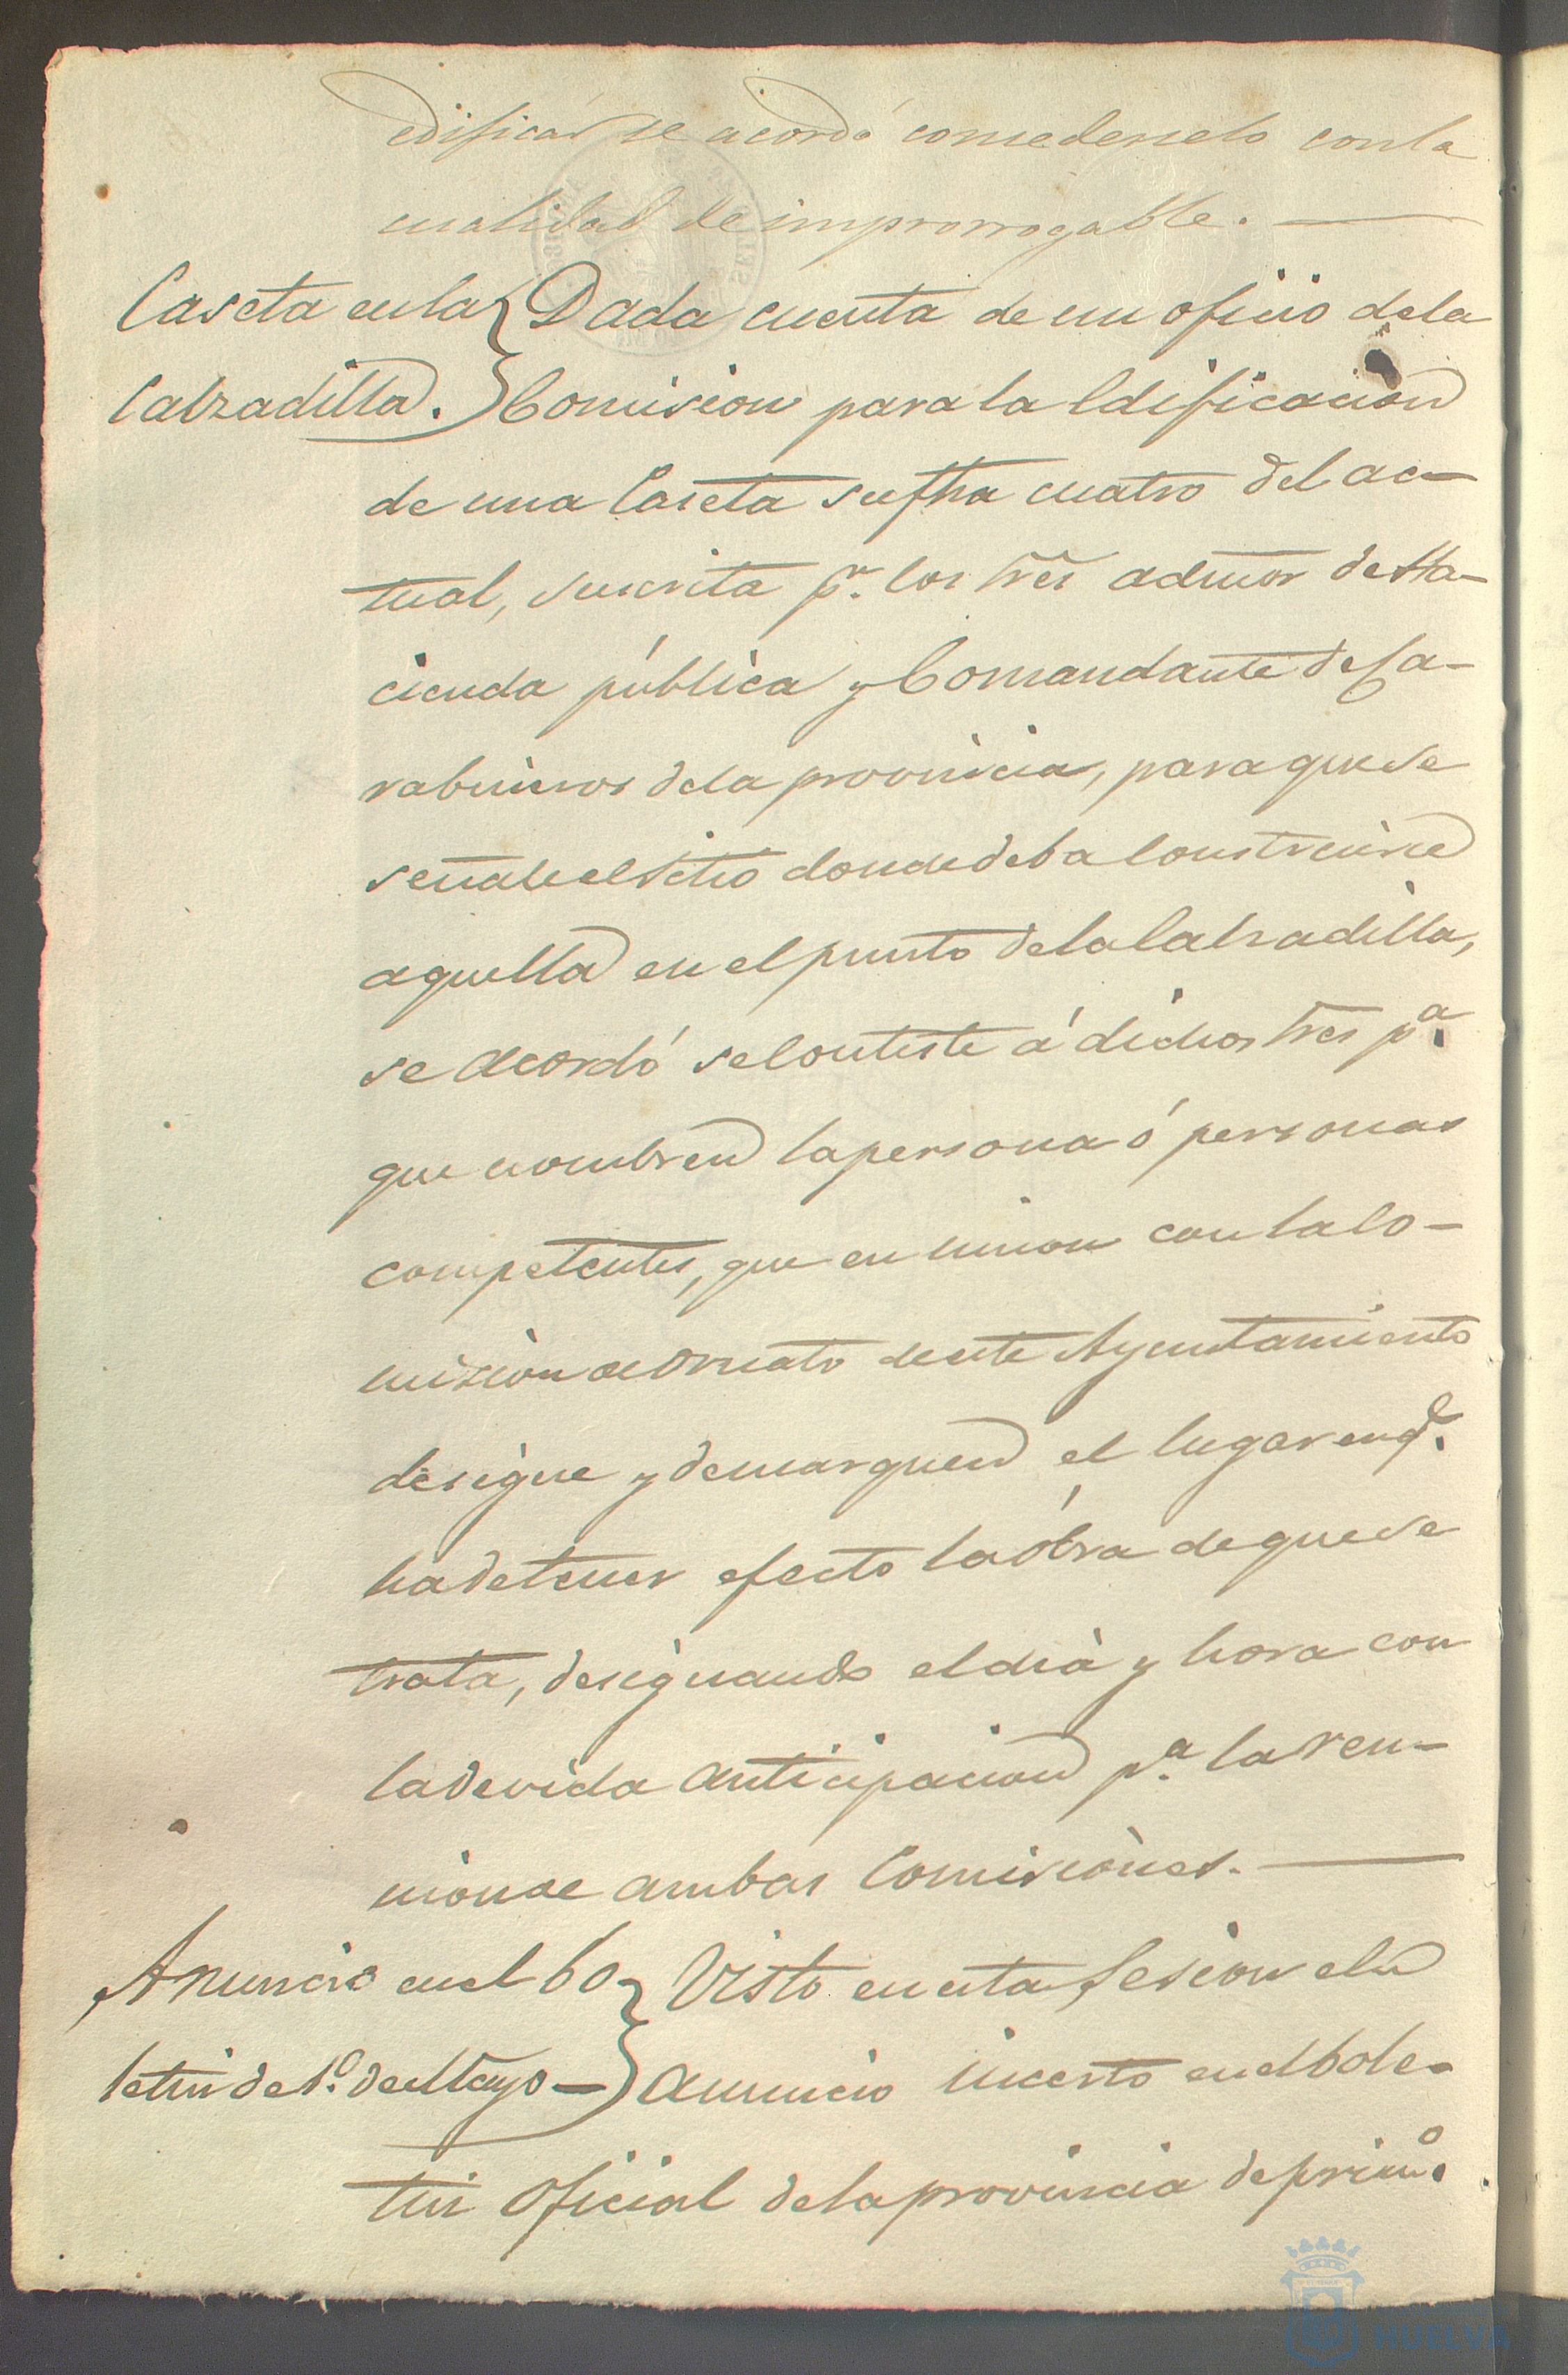 edificar se acordó concederselo con la
cualidad de improrrogable. —
Caseta en la Calzadilla.
Dada cuenta de un oficio de la
Comision para la Edificacion
de una Caseta su fha cuatro del ac-
tual, suscrita pr. los Sres admor de Ha-
cienda pública y Comandante de Ca-
rabineros de la provincia, para que se
señale el sitio donde deba Construirse
aquella en el punto de la Calzadilla,
se acordó se Conteste á dichos Sres pa.
que nombren la persona ó personas
competentes, que en union con la Co-
mision de Ornato de este Ayuntamiento
designe y demarquen el lugar en qe.
ha de tener efecto la óbra de que se
trata, designando el dia y hora con
la devida anticipacion pa. la reu-
nion de ambas Comisiones. —
Anuncio en el Bo-
letin de 1º. de Mayo —
Visto en esta Sesion el
anuncio incerto en el bole-
tin Oficial de la provincia de primº.
HUELVA